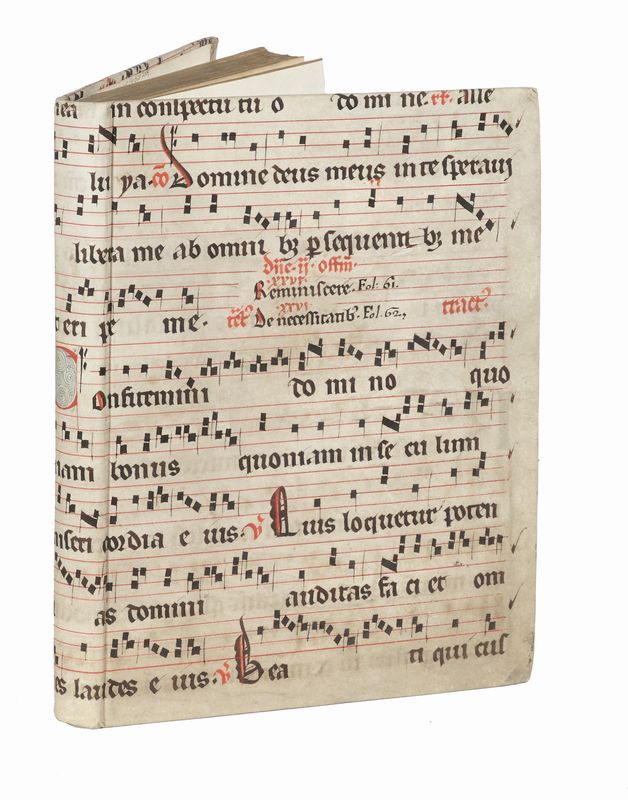 nea in conspectu tu o do mi ne. alle
lu ya. co Domine deus meus in te speraui
libera me ab omni bz psequenti bz me
Dñe. ij. offm.
xxvi
t eri pe me. Reminiscere. Fol: 61.
xxvi
De necessitatib. Fol. 62, tract
Confitemini do mi no quo
niam bonus quoniam in se cu lum
miseri cordia e ius. v Quis loquetur poten
as domini auditas fa ci et om
es laudes e ius. v Bea ti qui cus